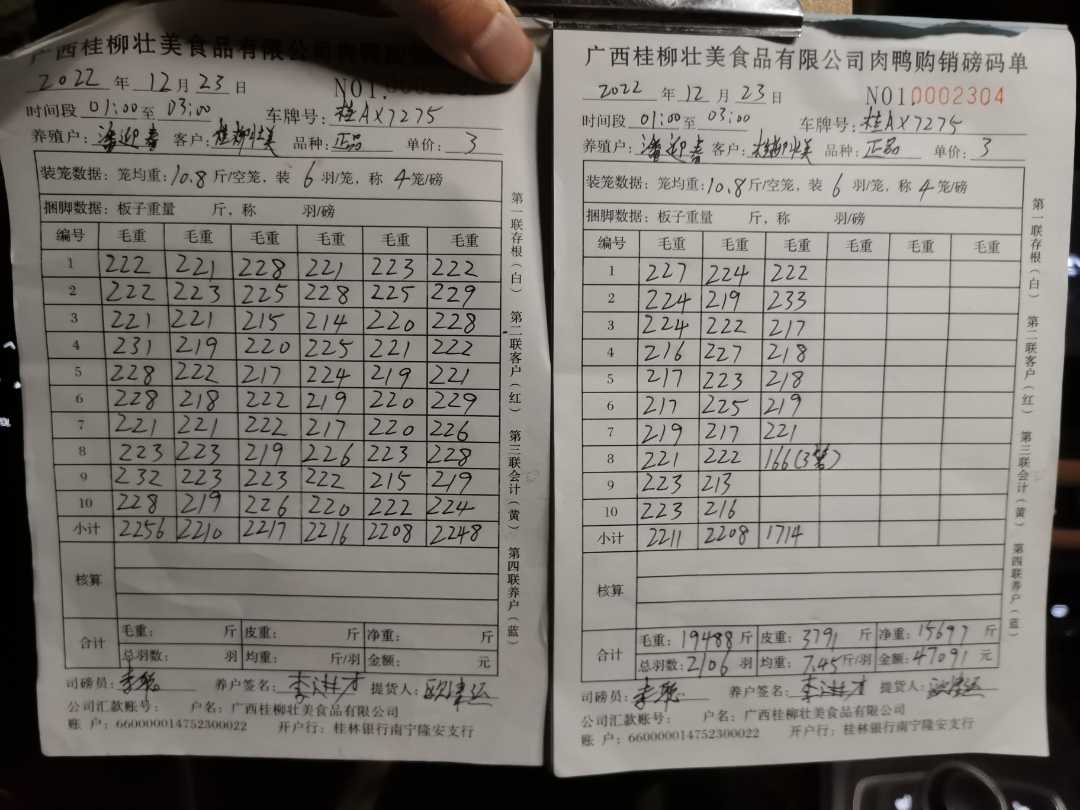 广西桂柳壮美食品有限公司肉鸭
2022 年 12 月 23 日 NO1.
时间段 01:00 至 03:00 车牌号: 桂AX7275
养殖户: 潘迎春 客户: 桂柳壮美 品种: 正品 单价: 3
装笼数据: 笼均重: 10.8 斤/空笼, 装 6 羽/笼, 称 4 笼/磅
捆脚数据: 板子重量 斤, 称 羽/磅
编号 毛重 毛重 毛重 毛重 毛重 毛重
1 222 221 228 221 223 222
2 222 223 225 228 225 229
3 221 221 215 214 220 228
4 231 219 220 225 221 222
5 228 222 217 224 219 221
6 228 218 222 219 220 229
7 221 221 222 217 220 226
8 223 223 219 226 223 228
9 232 223 223 222 215 219
10 228 219 226 220 222 224
小计 2256 2210 2217 2216 2208 2248
核算
合计 毛重: 斤 皮重: 斤 净重: 斤
总羽数: 羽 均重: 斤/羽 金额: 元
司磅员: 养户签名: 提货人:
公司汇款账号: 户名: 广西桂柳壮美食品有限公司
账 户: 660000014752300022 开户行: 桂林银行南宁隆安支行
第一联存根(白) 第二联客户(红) 第三联会计(黄) 第四联养户(蓝)
广西桂柳壮美食品有限公司肉鸭购销磅码单
2022 年 12 月 23 日 NO10002304
时间段 01:00 至 03:00 车牌号: 桂AX7275
养殖户: 潘迎春 客户: 桂柳壮美 品种: 正品 单价: 3
装笼数据: 笼均重: 10.8 斤/空笼, 装 6 羽/笼, 称 4 笼/磅
捆脚数据: 板子重量 斤, 称 羽/磅
编号 毛重 毛重 毛重 毛重 毛重 毛重
1 227 224 222
2 224 219 233
3 224 222 217
4 216 227 218
5 217 223 218
6 217 225 219
7 219 217 221
8 221 222 166(3笼)
9 223 213
10 223 216
小计 2211 2208 1714
核算
合计 毛重: 19488 斤 皮重: 3791 斤 净重: 15697 斤
总羽数: 2106 羽 均重: 7.45 斤/羽 金额: 47091 元
司磅员: 养户签名: 提货人:
公司汇款账号: 户名: 广西桂柳壮美食品有限公司
账 户: 660000014752300022 开户行: 桂林银行南宁隆安支行
第一联存根(白) 第二联客户(红) 第三联会计(黄) 第四联养户(蓝)